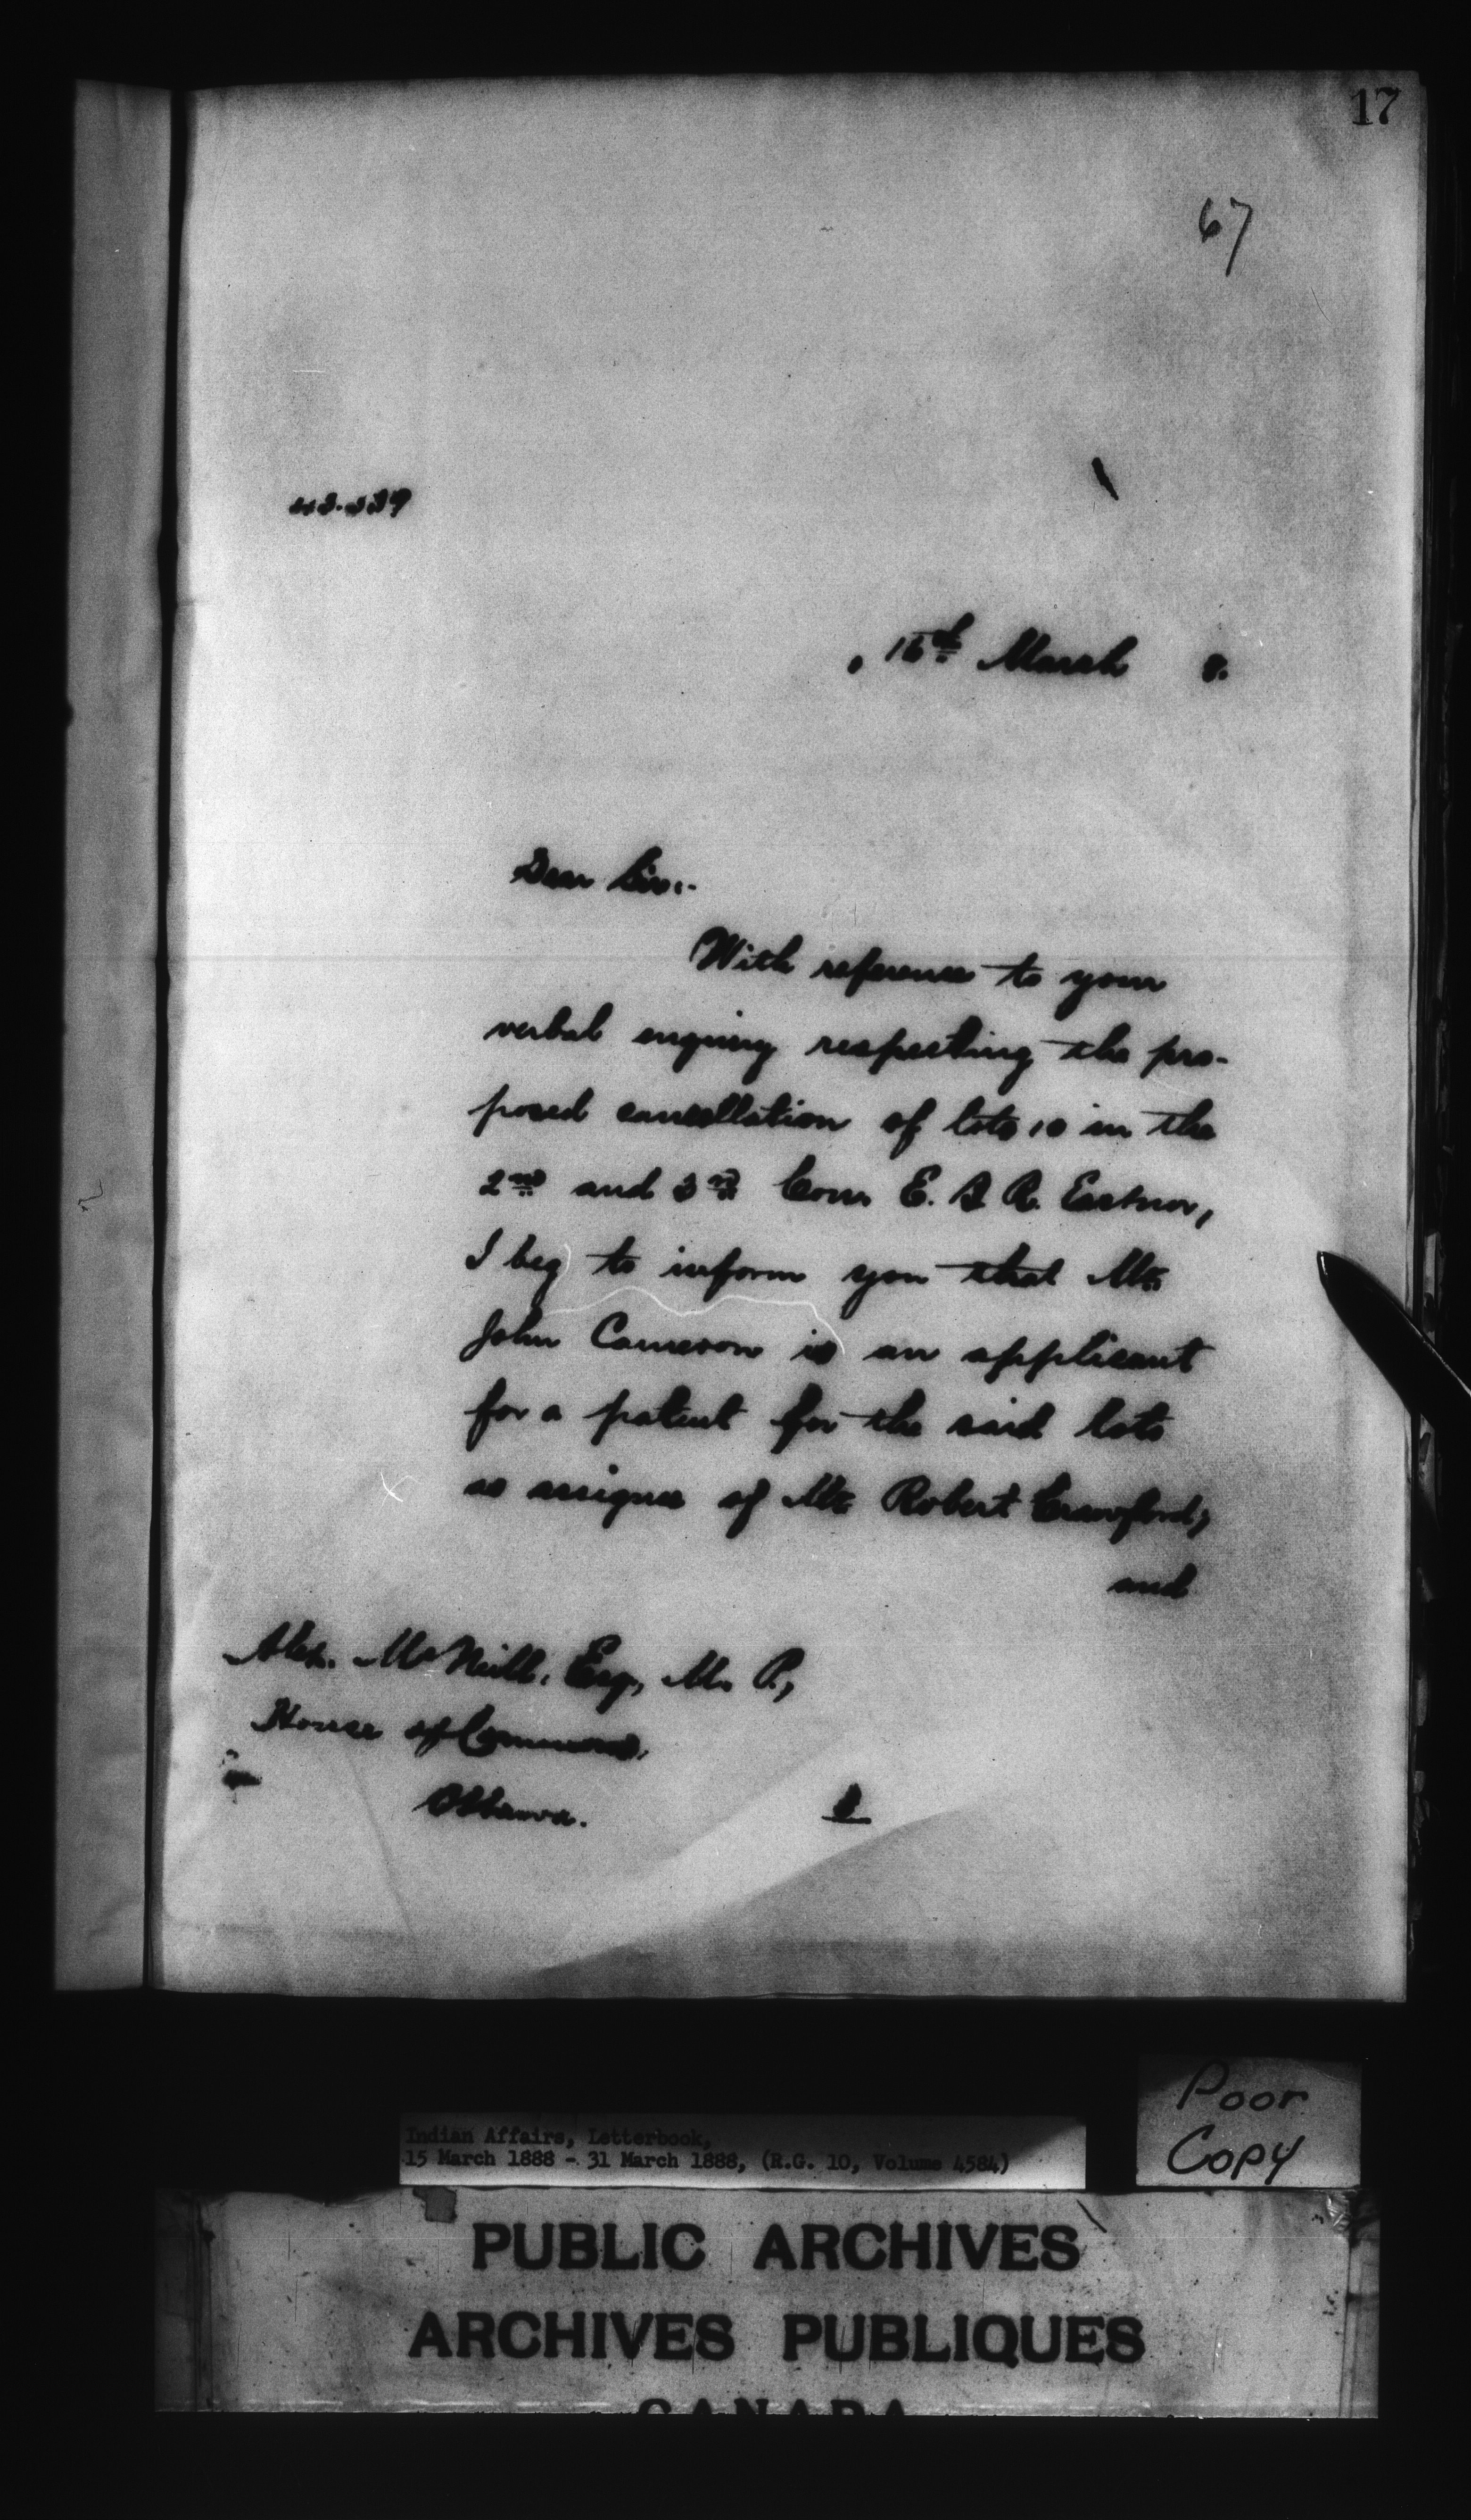 17
67
16th March 8.
Dear Sir:-
With reference to your
verbal enquiry respecting the pro-
posed cancellation of lots 10 in the
2nd and 3rd Con. E. B. R. Eastnor,
I beg to inform you that Mr.
John Cameron is an applicant
for a patent for the said lots
as assignee of Mr. Robert Crawford,
and
Alex. McNeill. Esq., M. P.,
House of Commons,
Ottawa.
Poor
Copy
Indian Affairs, Letterbook,
15 March 1888 - 31 March 1888, (R.G. 10, Volume 4584)
PUBLIC ARCHIVES
ARCHIVES PUBLIQUES
CANADA